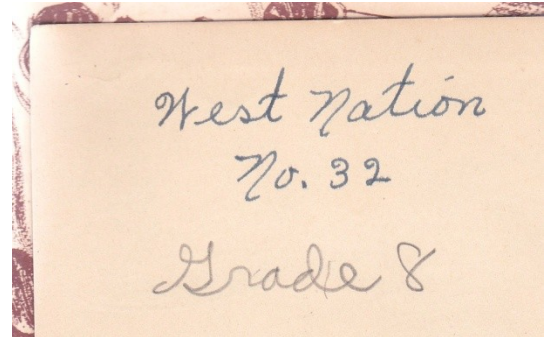 West Nation
No. 32
Grade 8